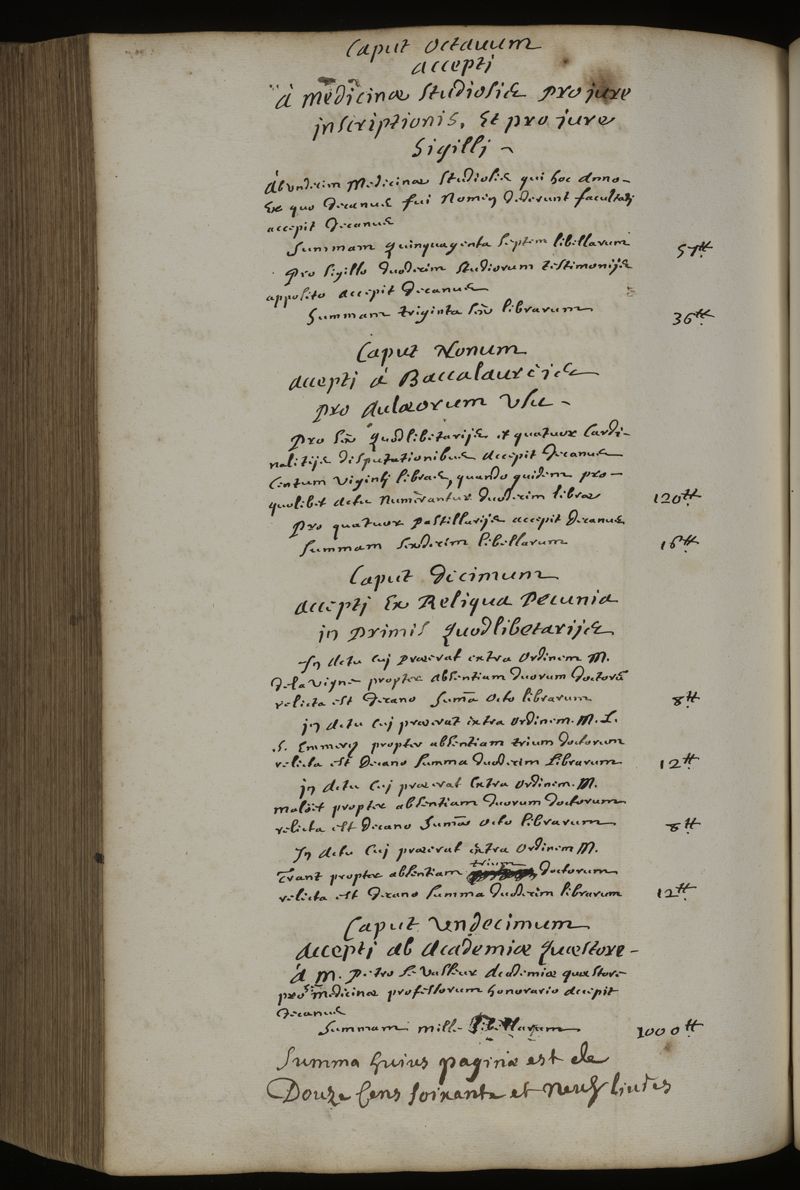 Caput Octauum
accepti
à medicinæ studiosis pro jure
jnscriptionis, Et pro jure
Sigillj
Ab undecim Medicinæ studiosis qui hoc Anno
Ex quo decanus fui Nomen dederunt facultatj
accepit decanus
Summam quinquaginta septem libellarum 57 tt
Pro sigillo duodecim studiorum testimonijs
apposito accepit decanus
Summam triginta sex librarum 36 tt
Caput Nonum
accepti à Baccalaureis
pro Aulæorum Usu
Pro sex quodlibetarijs et quatuor Cardi-
nalitijs disputationibus accepit decanus
Centum Vigintj libras, quando quidem pro
quolibet actu numerantur duodecim libræ 120 tt
Pro quatuor Pastillarijs accepit decanus
Summam sexdecim libellarum 16 tt
Caput Decimum
accepti Ex Reliqua Pecunia
in Primis quodlibetarijs
In actu cuj præerat extra Ordinem M.
de la Vigne propter absentiam duorum doctorū
relicta est decano Summa octo librarum 8 tt
jn actu cuj præerat extra ordinem. M. L.
S. Emmery propter absentiam trium doctorum
relicta est decano summa duodecim Librarum 12 tt
jn actu Cuj præerat Extra ordinem. M.
propter absentiam duorum doctorum
relicta est decano summa octo librarum 8 tt
In actu Cuj præerat extra ordinem M.
propter absentiam trium doctorum
relicta est decano summa duodecim librarum 12 tt
Caput Undecimum
accepti ab Academiæ Quæstore
à M. Petro le Vasseur Academiæ quæstore
pro medicinæ professorum honorario accepit
decanus
Summam mille libellarum 1000 tt
Summa huius paginæ est de
Douze Cens soixante et neuf liures